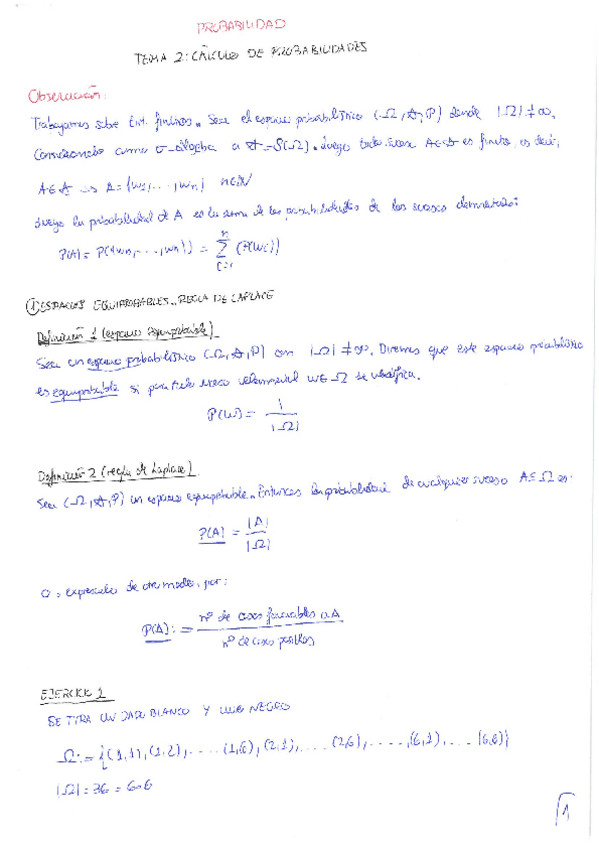 PROBABILIDAD
TEMA 2: CÁLCULO DE PROBABILIDADES
Observación:
Trabajamos sobre Ent. finitos. Sea el espacio probabilístico (Ω, A, P) donde |Ω| ≠ ∞.
Considerando como σ-álgebra a A = S(Ω). Luego todo suceso A∈A es finito, es decir,
A∈A => A={w₁, ..., wₙ} n∈N
Luego la probabilidad de A es la suma de las probabilidades de los sucesos elementales:
P(A) = P({w₁, ..., wₙ}) = ∑ⁿᵢ₌₁ (P(wᵢ))
① ESPACIOS EQUIPROBABLES. REGLA DE LAPLACE
Definición 1 (espacio equiprobable)
Sea un espacio probabilístico (Ω, A, P) con |Ω| ≠ ∞. Diremos que este espacio probabilístico
es equiprobable si para todo suceso elemental w∈Ω se verifica.
P(w) = 1/|Ω|
Definición 2 (regla de Laplace)
Sea (Ω, A, P) un espacio equiprobable. Entonces la probabilidad de cualquier suceso A∈Ω es:
P(A) = |A|/|Ω|
O, expresado de otro modo, por:
P(A) := nº de casos favorables a A / nº de casos posibles
EJERCICIO 1
SE TIRA UN DADO BLANCO Y UNO NEGRO
Ω := {(1,1), (1,2), .... (1,6), (2,1), .... (2,6), ....., (6,1), ... (6,6)}
|Ω| = 36 = 6·6
1